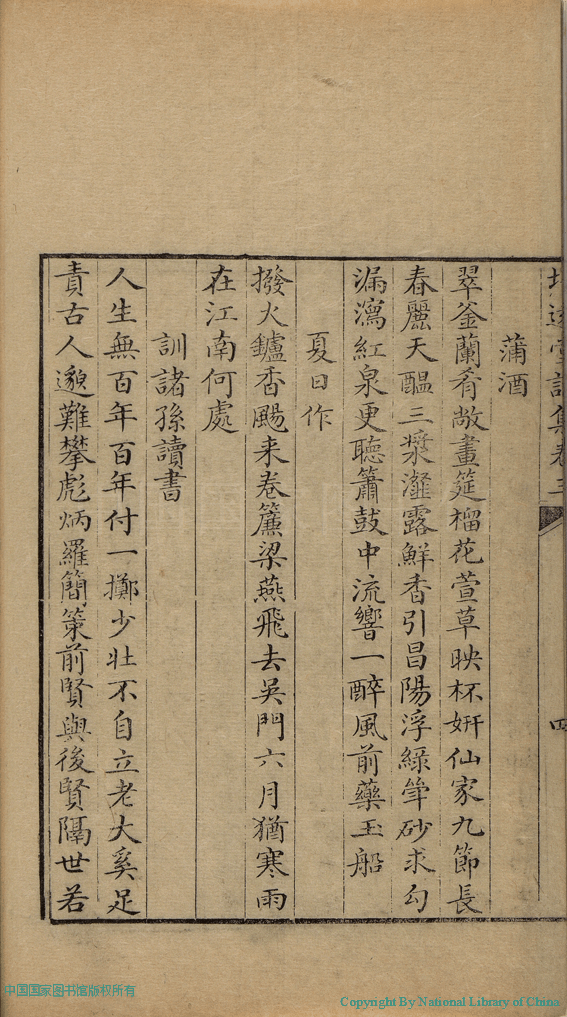 蒲酒
翠釜蘭肴敞畫筵榴花萱草映杯妍仙家九節長
春麗天醖三漿灩露鮮香引昌陽浮綠篳砂求勾
漏瀉紅泉更聽簫鼓中流響一醉風前藥玉船
夏日作
撥火鑪香颺来卷簾梁燕飛去吳門六月猶寒雨
在江南何處
訓諸孫讀書
人生無百年百年付一擲少壯不自立老大奚足
責古人邈難攀彪炳羅簡策前賢與後賢隔世若
中国国家图书馆版权所有
Copyright By National Library of China